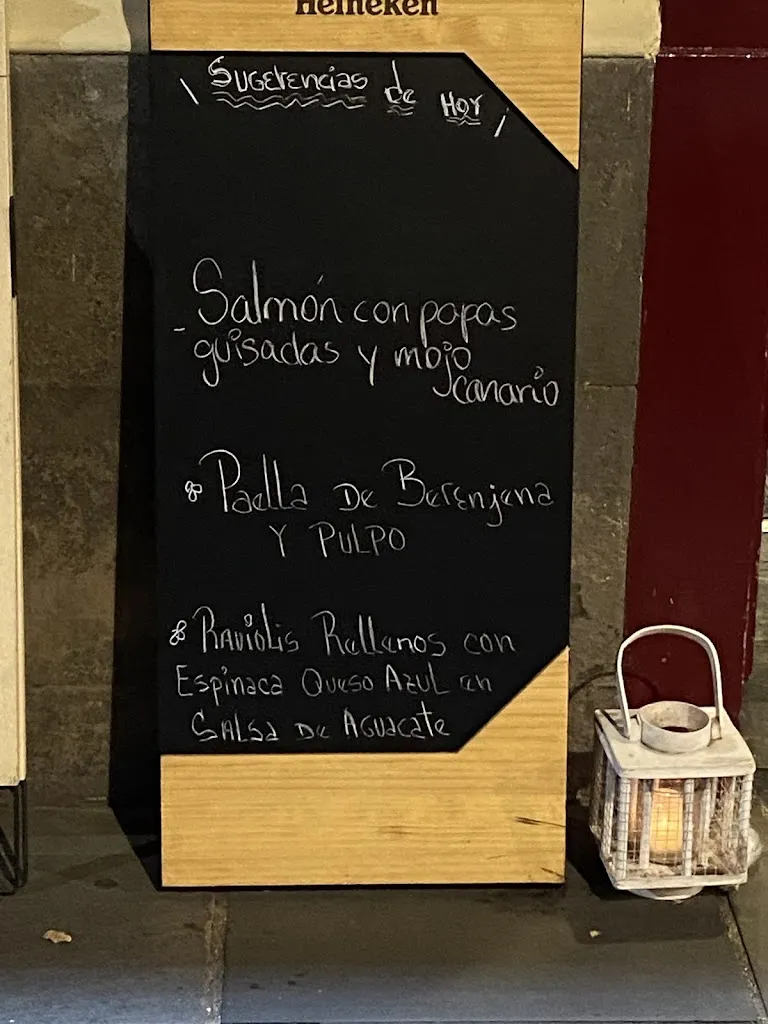 Heineken
\ Sugerencias de Hoy ¡
- Salmón con papas
guisadas y mojo
canario
Paella De Berenjena
Y PULPO
Raviolis Rellenos con
Espinaca Queso Azul en
Salsa De Aguacate